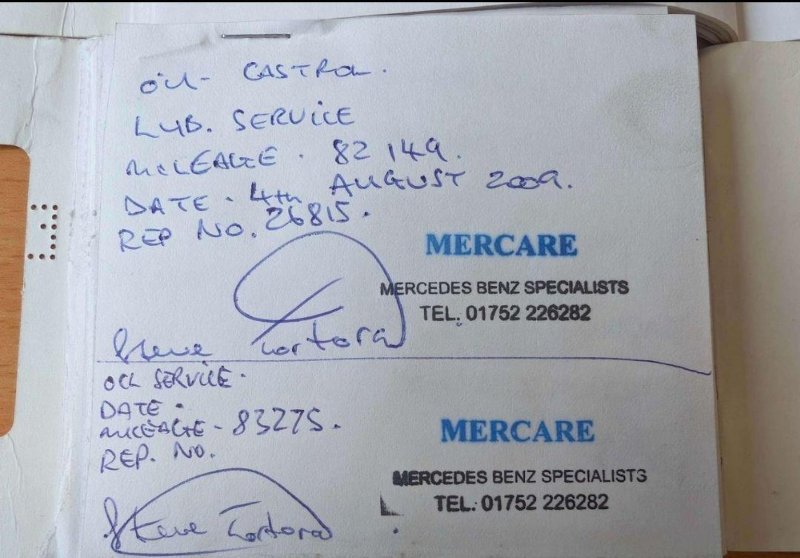 OIL - CASTROL.
LUB. SERVICE
MILEAGE. 82 149.
DATE. 4th AUGUST 2009.
REP NO. 26815.
MERCARE
MERCEDES BENZ SPECIALISTS
TEL. 01752 226282
Steve Tortora
OIL SERVICE.
DATE.
MILEAGE - 83275.
REP. NO.
MERCARE
MERCEDES BENZ SPECIALISTS
TEL. 01752 226282
Steve Tortora